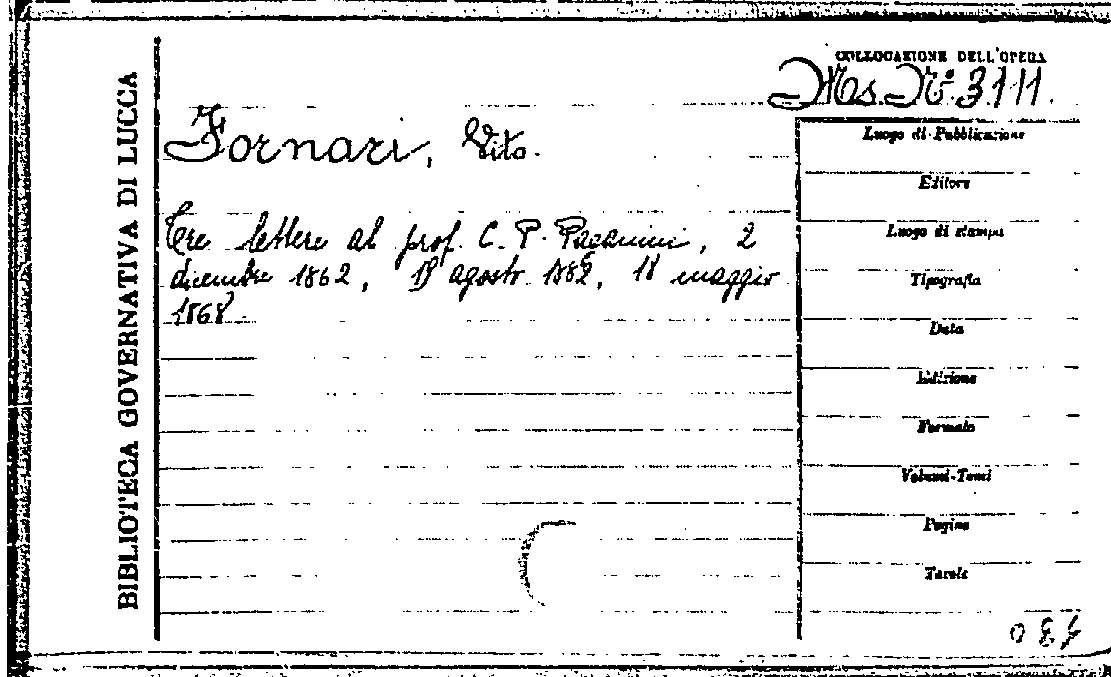 BIBLIOTECA GOVERNATIVA DI LUCCA
COLLOCAZIONE DELL'OPERA
Ms. N.° 3111.
Fornari, Vito.
Tre lettere al prof. C. P. Paganini, 2
dicembre 1862, agosto, 18 maggio
1868.
Luogo di Pubblicazione
Editore
Luogo di stampa
Tipografia
Data
Edizione
Formato
Volumi-Tomi
Pagine
Tavole